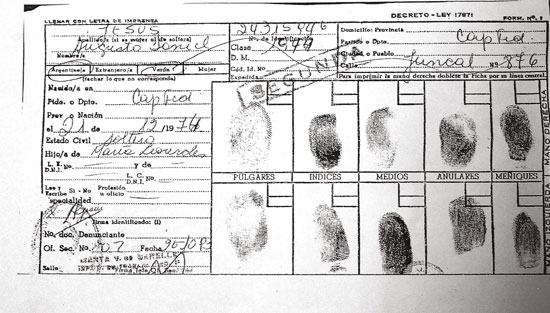 LLENAR CON LETRA DE IMPRENTA
DECRETO - LEY 17671
FORM. N°. 1
JESUS
24315446
Domicilio: Provincia
Apellido/s (si es mujer el de soltera)
No. de Identificación
Augusto Daniel
Clase
Partido o Dpto.
Cap Fed.
Nombre/s
D. M.
Ciudad o Pueblo
Argentino/a Extranjero/a Varón Mujer
Céd. Id. No.
Calle Juncal No. 876
(tachar lo que no corresponda)
Expedida
SEGUNDA
Para imprimir la mano derecha doblese la ficha por su línea central.
Nacido/a en
Pdo. o Dpto. Cap Fed
Prov o Nación
el 21 de 12 1974
Estado Civil soltero
Hijo/a de María Lourdes
L. E. D.N.I. No. y de
L. C. D.N.I. No.
PULGARES INDICES MEDIOS ANULARES MEÑIQUES
Lee y Escribe Si - No Profesión u oficio
especialidad
Firma identificado: (1)
No. doc. Denunciante
Of. Sec. No. Fecha
Sello
MANO DERECHA